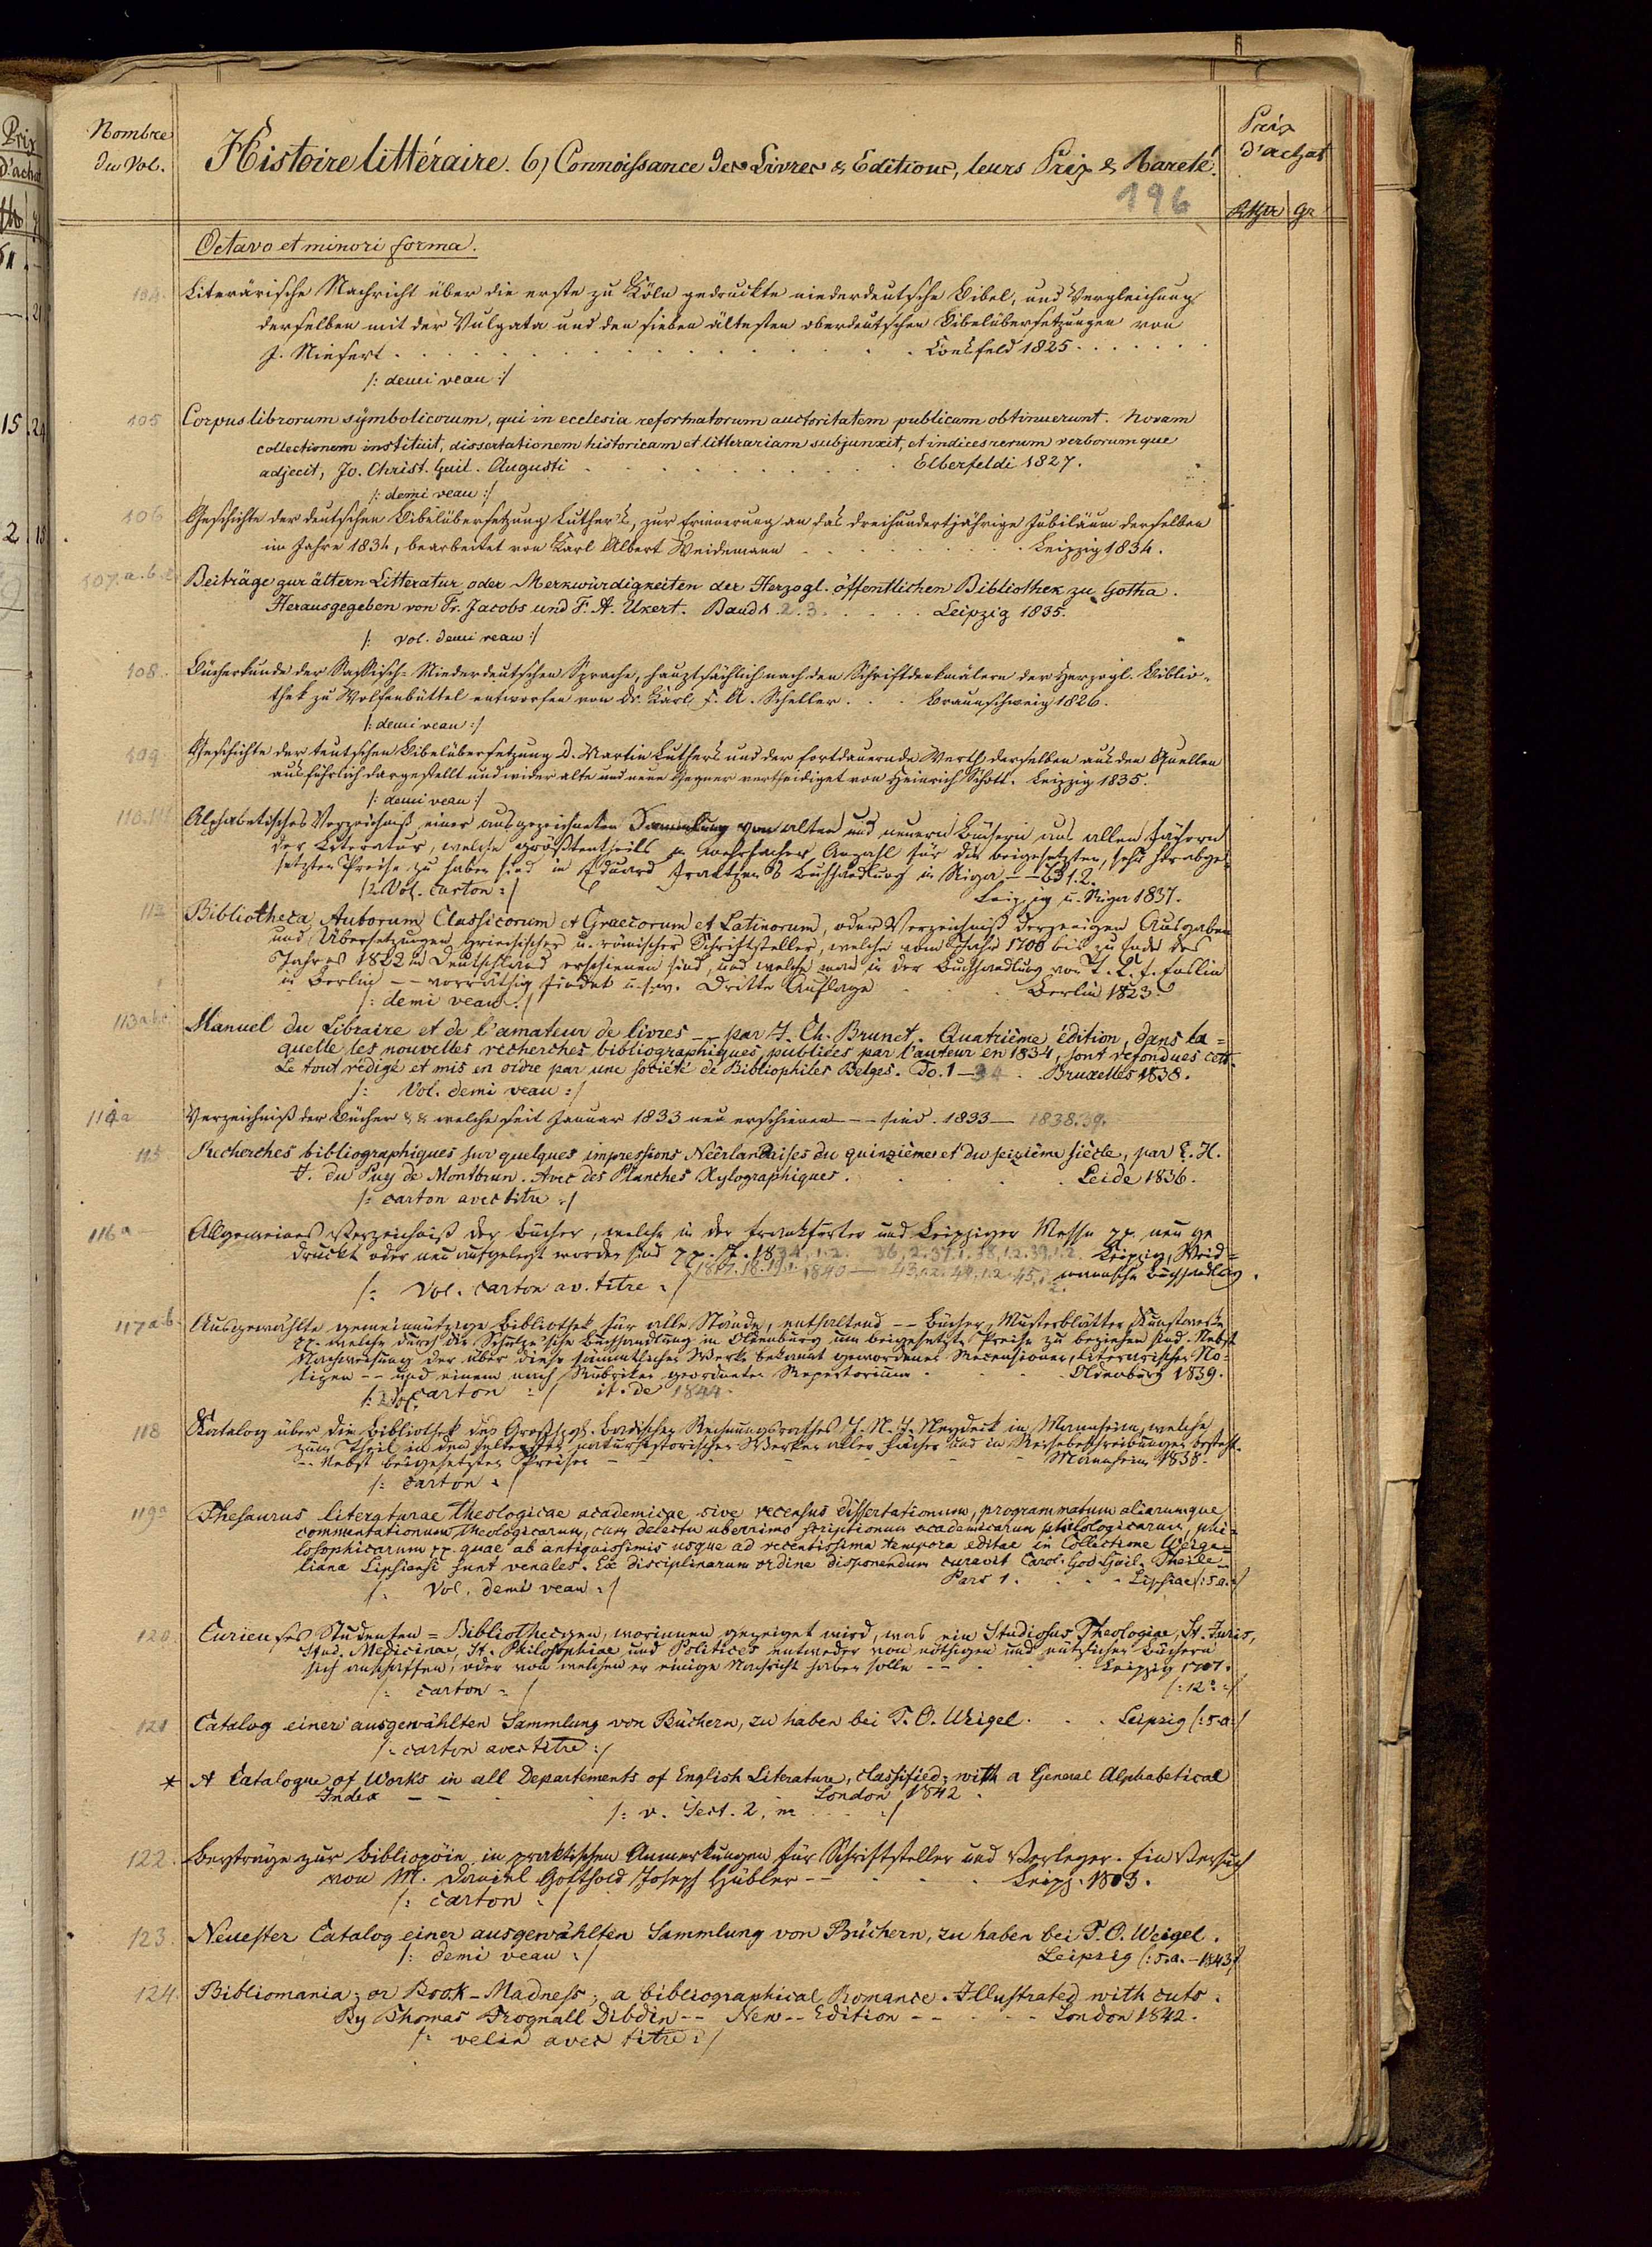 Nombre
du Vol.
Histoire littéraire. 6) Connoissance des Livres & Editions, leurs Prix & Rareté.
Prix
d'achat
196
Rthr gr
Octavo et minori forma.
104. Literärische Nachricht über die erste zu Köln gedruckte niederdeutsche Bibel, und Vergleichung
derselben mit der Vulgata und den sieben ältesten oberdeutschen Bibelübersetzungen von
J. Niesert . . . Coesfeld 1825 . . .
/: demi veau :/
105 Corpus librorum symbolicorum, qui in ecclesia reformatorum auctoritatem publicam obtinuerunt. Novam
collectionem instituit, dissertationem historicam et litterariam subjunxit, et indices rerum verborumque
adjecit, Jo. Christ. Guil. Augusti . . . Elberfeldi 1827.
/: demi veau :/
106 Geschichte der deutschen Bibelübersetzung Luther's, zur Erinnerung an das dreihundertjährige Jubiläum derselben
im Jahre 1834, bearbeitet von Karl Albert Weidemann . . . Leipzig 1834.
107. a. b. c. Beiträge zur ältern Litteratur oder Merkwürdigkeiten der Herzogl. öffentlichen Bibliothek zu Gotha.
Herausgegeben von Fr. Jacobs und F. A. Ukert. Band 1. 2. 3. . . . Leipzig 1835.
/: vol. demi veau :/
108. Bücherkunde der Sassisch-Niederdeutschen Sprache, hauptsächlich nach den Schriftdenkmälern der Herzogl. Biblio-
thek zu Wolfenbüttel entworfen von Dr. Karl F. A. Scheller . . . Braunschweig 1826.
/: demi veau :/
109 Geschichte der teutschen Bibelübersetzung D. Martin Luthers und der fortdauernde Werth derselben aus den Quellen
ausführlich dargestellt und wider alte und neue Gegner vertheidiget von Heinrich Schott. Leipzig 1835.
/: demi veau :/
110.111 Alphabetisches Verzeichniß einer ausgezeichneten Sammlung von alten und neuern Büchern aus allen Fächern
der Literatur, welche größtentheils in mehrfacher Anzahl für die beigesetzten, sehr herabge-
setzten Preise zu haben sind in Eduard Frantzen's Buchhandlung in Riga -- Bd 1. 2.
/: 2 Vol. carton :/ Leipzig u. Riga 1837.
112 Bibliotheca Autorum Classicorum et Graecorum et Latinorum, oder Verzeichniß derjenigen Ausgaben
und Übersetzungen griechischer u. römischer Schriftsteller, welche vom Jahr 1700 bis zu Ende des
Jahres 1822 in Deutschland erschienen sind, und welche man in der Buchhandlung von T. C. F. Enslin
in Berlin -- vorräthig findet u.s.w. Dritte Auflage . . . Berlin 1823.
/: demi veau :/
113 a b c Manuel du Libraire et de l'amateur de livres -- par J. Ch. Brunet. Quatrième édition, dans la=
quelle les nouvelles recherches bibliographiques, publiées par l'auteur en 1834, sont refondues cett.
Le tout rédigé et mis en ordre par une société de Bibliophiles Belges. To. 1 - 4 . Bruxelles 1838.
/: Vol. demi veau :/
114 a Verzeichniß der Bücher & & welche seit Januar 1833 neu erschienen --- sind. 1833 - 1838. 39.
115 Recherches bibliographiques sur quelques impressions Néerlandaises du quinzième et du seizième siècle, par E. H.
J. du Puy de Montbrun. Avec des Planches Xylographiques. . . . Leide 1836.
/: carton avec titre :/
116 a Allgemeines Verzeichniß der Bücher, welche in der Frankfurter und Leipziger Messe pp. neu ge
druckt oder neu aufgelegt worden sind pp. 1834, 1. 2. 36, 2. 37. 1. 38, 1. 2. 39, 1. 2. Leipzig, Weid=
1840 - 43, 1. 2. 44, 1. 2. 45, 1. 2. mannsche Buchhandlg.
/: Vol. carton av. titre :/
117 a. b. Ausgewählte gemeinnützige Bibliothek für alle Stände, enthaltend -- Bücher, Musterblätter, Kunstwerke
pp. welche durch die Schulze'sche Buchhandlung in Oldenburg um beigesetzte Preise zu beziehen sind. Nebst
Nachweisung der über diese sämmtlichen Werke bekannt gewordenen Recensionen, literarischen No=
tizen -- und einem nach Rubriken geordneten Repertorium . . . Oldenburg 1839.
/: 2 Vol. carton :/ it. de 1844.
118 Katalog über die Bibliothek des Großhzgl. Badischen Rechnungsrathes J. N. J. Neydeck in Mannheim, welche
zum Theil in den seltensten naturhistorischen Werken aller Fächer und in Reisebeschreibungen besteht.
-- Nebst beigesetzten Preisen . . . Mannheim 1838.
/: carton :/
119 a Thesaurus literaturae theologicae academicae sive recensus dissertationum, programmatum aliarumque
commentationum theologicarum, cum delectu uberrimo scriptionum academicarum philologicarum, phi=
losophicarum pp. quae ab antiquissimis usque ad recentissima tempora editae in Collectione Weige=
liana Lipsiensi sunt venales. Ex disciplinarum ordine disponendum curavit Carol. God. Guil. Theile --
/: Vol. demi veau :/ Pars 1. . . . Lipsiae /: s. a. :/
120 Curieuses Studenten=Bibliothecgen, worinnen gezeiget wird, was ein Studiosus Theologiae, St. Juris,
Stud. Medicinae, St. Philosophiae und Politices entweder von nöthigen und nützlichen Büchern
sich anschaffen, oder von welchen er einige Nachricht haben solle -- . . . Leipzig 1707.
/: carton :/ /: 12° :/
121 Catalog einer ausgewählten Sammlung von Büchern, zu haben bei T. O. Weigel . . . Leipzig /: s. a :/
/: carton avec titre :/
* A Catalogue of Works in all Departements of English Literature, classified; with a General Alphabetical
Index -- London 1842.
/: v. Sect. 2, m . . . :/
122. Beyträge zur Bibliopöie in praktischen Anmerkungen für Schriftsteller und Verleger. Ein Versuch
von M. Daniel Gotthold Joseph Hübler -- . . . Leipz. 1803.
/: carton :/
123. Neuester Catalog einer ausgewählten Sammlung von Büchern, zu haben bei T. O. Weigel.
/: demi veau :/ Leipzig /: s. a. - 1843 :/
124. Bibliomania; or Book-Madness; a bibliographical Romance. Illustrated with cuts.
By Thomas Frognall Dibdin -- New -- Edition -- . . . London 1842.
/: velin avec titre :/